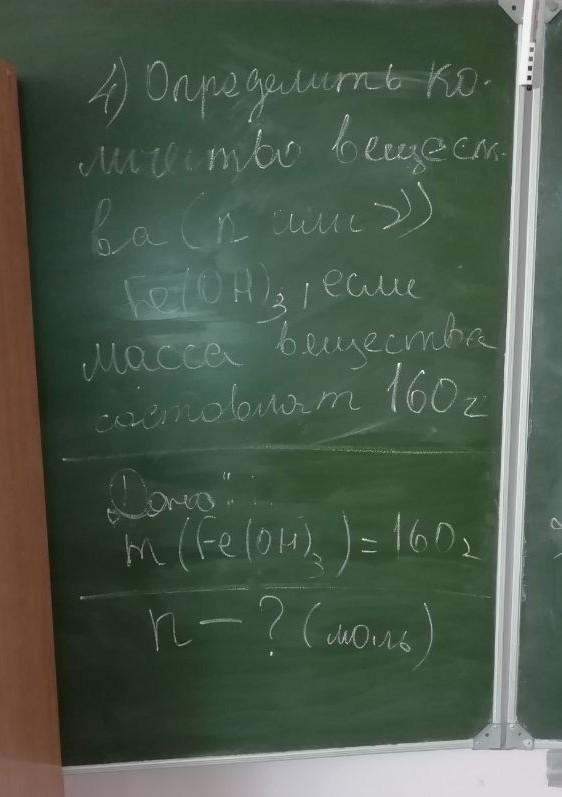 4) Определить ко-
личество вещест-
ва (n или ν)
Fe(OH)₃, если
масса вещества
составляет 160г
Дано:
m(Fe(OH)₃)=160г
n – ? (моль)